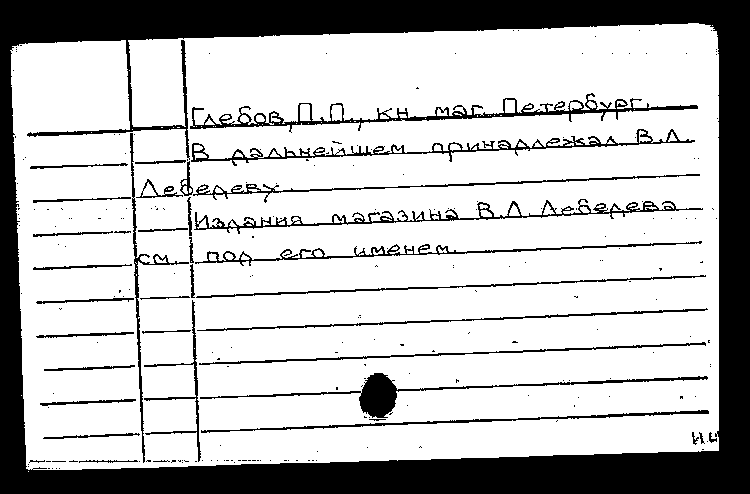 Глебов, П.П., кн. маг. Петербург.
В дальнейшем принадлежал В.Л.
Лебедеву.
Издания магазина В.Л. Лебедева
см. под его именем.